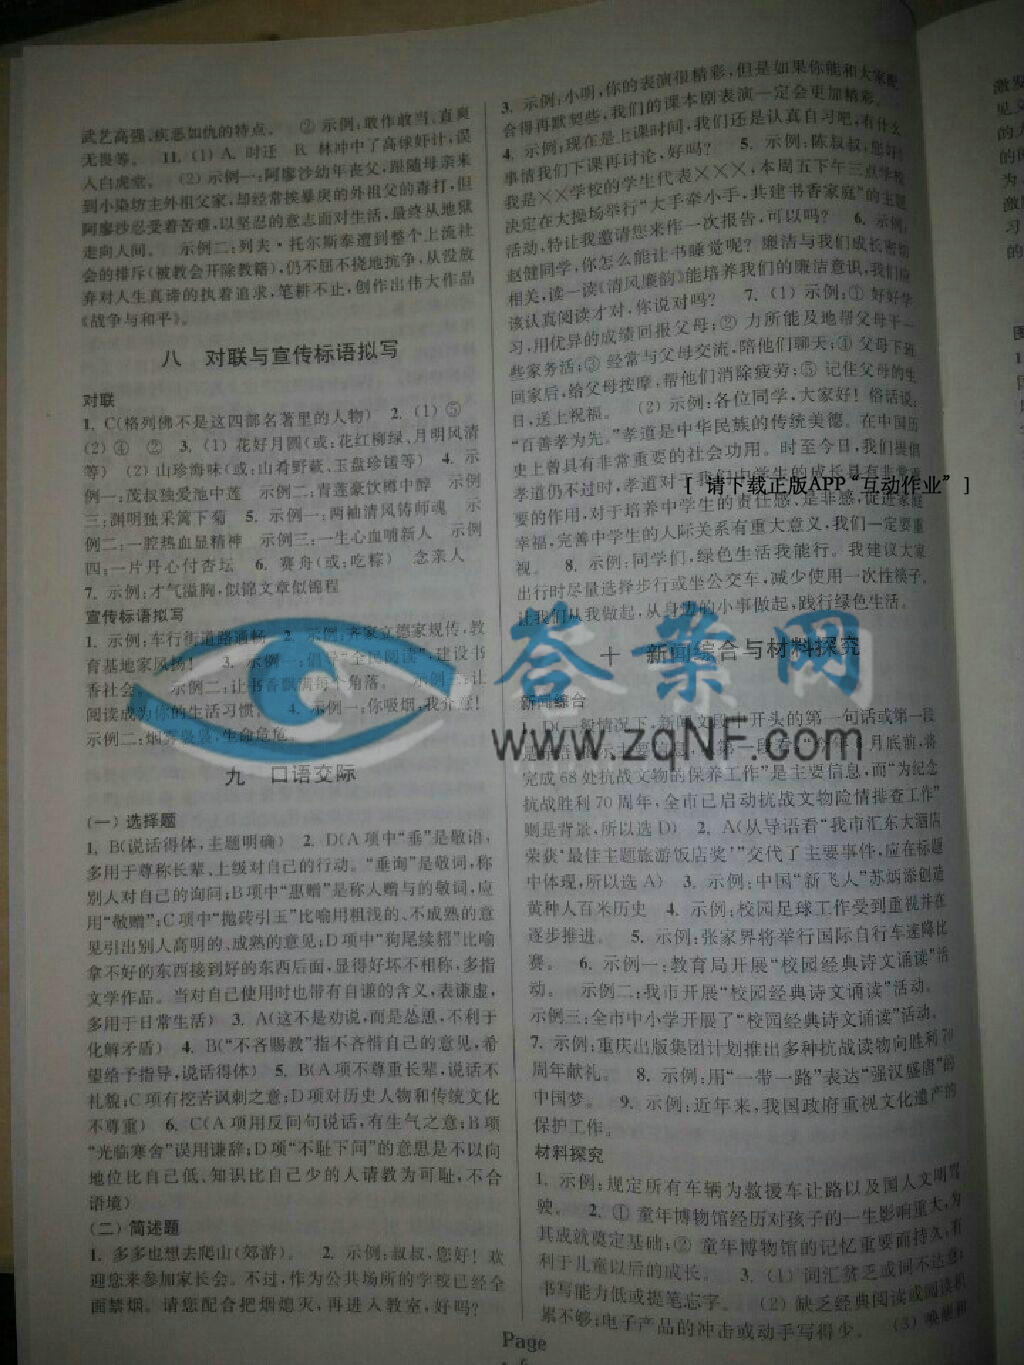 武艺高强、疾恶如仇的特点。　② 示例:敢作敢当、直爽
无畏等。　11. (1) A. 时迁　B. 林冲中了高俅奸计,误
入白虎堂。　(2) 示例一:阿廖沙幼年丧父,跟随母亲来
到小染坊主外祖父家,却经常挨暴戾的外祖父的毒打,但
阿廖沙忍受着苦难,以坚忍的意志面对生活,最终从地狱
走向人间。　示例二:列夫·托尔斯泰遭到整个上流社
会的排斥(被教会开除教籍),仍不屈不挠地抗争,从没放
弃对人生真谛的执着追求,笔耕不止,创作出伟大作品
《战争与和平》。
八　对联与宣传标语拟写
对联
1. C(格列佛不是这四部名著里的人物)　2. (1) ⑤
(2) ④　②　3. (1) 花好月圆(或:花红柳绿、月明风清
等)　(2) 山珍海味(或:山肴野蔌、玉盘珍馐等)　4. 示
例一:茂叔独爱池中莲　示例二:青莲豪饮樽中醇　示例
三:渊明独采篱下菊　5. 示例一:两袖清风铸师魂　示
例二:一腔热血显精神　示例三:一生心血哺新人　示例
四:一片丹心付杏坛　6. 赛舟(或:吃粽)　念亲人
7. 示例:才气溢胸,似锦文章似锦程
宣传标语拟写
1. 示例:车行街道路通畅　2. 示例:齐家立德家规传,教
育基地家风扬!　3. 示例一:倡导“全民阅读”,建设书
香社会。　示例二:让书香飘满每个角落。　示例三:让
阅读成为你的生活习惯。　4. 示例一:你吸烟,我介意!
示例二:烟雾袅袅,生命危危。
九　口语交际
(一) 选择题
1. B(说话得体,主题明确)　2. D(A项中“垂”是敬语,
多用于尊称长辈、上级对自己的行动。“垂询”是敬词,称
别人对自己的询问;B项中“惠赠”是称人赠与的敬词,应
用“敬赠”;C项中“抛砖引玉”比喻用粗浅的、不成熟的意
见引出别人高明的、成熟的意见;D项中“狗尾续貂”比喻
拿不好的东西接到好的东西后面,显得好坏不相称,多指
文学作品。当对自己使用时也带有自谦的含义,表谦虚,
多用于日常生活)　3. A(这不是劝说,而是怂恿,不利于
化解矛盾)　4. B(“不吝赐教”指不吝惜自己的意见,希
望给予指导,说话得体)　5. B(A项不尊重长辈,说话不
礼貌;C项有挖苦讽刺之意;D项对历史人物和传统文化
不尊重)　6. C(A项用反问句说话,有生气之意;B项
“光临寒舍”误用谦辞;D项“不耻下问”的意思是不以向
地位比自己低、知识比自己少的人请教为可耻,不合
语境)
(二) 简述题
1. 多多也想去爬山(郊游)。　2. 示例:叔叔,您好!欢
迎您来参加家长会。不过,作为公共场所的学校已经全
面禁烟。请您配合把烟熄灭,再进入教室,好吗?
3. 示例:小明,你的表演很精彩,但是如果你能和大家配
合得再默契些,我们的课本剧表演一定会更加精彩。
4. 示例:现在是上课时间,我们还是认真自习吧,有什么
事情我们下课再讨论,好吗?　5. 示例:陈叔叔,您好!
我是××学校的学生代表×××,本周五下午三点学校
决定在大操场举行“大手牵小手,共建书香家庭”的主题
活动,特让我邀请您来作一次报告,可以吗?　6. 示例:
赵健同学,你怎么能让书睡觉呢?廉洁与我们成长密切
相关,读一读《清风廉韵》能培养我们的廉洁意识,我们应
该认真阅读才对,你说对吗?　7. (1) 示例:① 好好学
习,用优异的成绩回报父母;② 力所能及地帮父母干一
些家务活;③ 经常与父母交流,陪他们聊天;④ 父母下班
回家后,给父母按摩,帮他们消除疲劳;⑤ 记住父母的生
日,送上祝福。　(2) 示例:各位同学,大家好!俗话说:
“百善孝为先。”孝道是中华民族的传统美德。在中国历
史上曾具有非常重要的社会功用。时至今日,我们提倡
孝道仍不过时,孝道对于我们中学生的成长具有非常重
要的作用,对于培养中学生的责任感、是非感,促进家庭
幸福,完善中学生的人际关系有重大意义,我们一定要重
视。　8. 示例:同学们,绿色生活我能行。我建议大家
出行时尽量选择步行或坐公交车,减少使用一次性筷子,
让我们从我做起,从身边的小事做起,践行绿色生活。
[“请下载正版APP“互动作业”]
答案网
www.zqNF.com
十　新闻综合与材料探究
新闻综合
1. D(一般情况下,新闻文段中开头的第一句话或第一段
完成68处抗战文物的保养工作”是主要信息,而“为纪念
抗战胜利70周年,全市已启动抗战文物险情排查工作”
则是背景,所以选D)　2. A(从导语看“我市汇东大酒店
荣获‘最佳主题旅游饭店奖’”交代了主要事件,应在标题
中体现,所以选A)　3. 示例:中国“新飞人”苏炳添创造
黄种人百米历史　4. 示例:校园足球工作受到重视并在
逐步推进。　5. 示例:张家界将举行国际自行车速降比
赛。　6. 示例一:教育局开展“校园经典诗文诵读”活
动。　示例二:我市开展“校园经典诗文诵读”活动。
示例三:全市中小学开展了“校园经典诗文诵读”活动。
7. 示例:重庆出版集团计划推出多种抗战读物向胜利70
周年献礼。　8. 示例:用“一带一路”表达“强汉盛唐”的
中国梦。　9. 示例:近年来,我国政府重视文化遗产的
保护工作。
材料探究
1. 示例:规定所有车辆为救援车让路以及国人文明驾
驶。　2. ① 童年博物馆经历对孩子的一生影响重大,为
其成就奠定基础;② 童年博物馆的记忆重要而持久,有
利于儿童以后的成长。　3. (1) 词汇贫乏或词不达意;
书写能力低或提笔忘字。　(2) 缺乏经典阅读或阅读积
累不够;电子产品的冲击或动手写得少。　(3) 唤醒和
Page